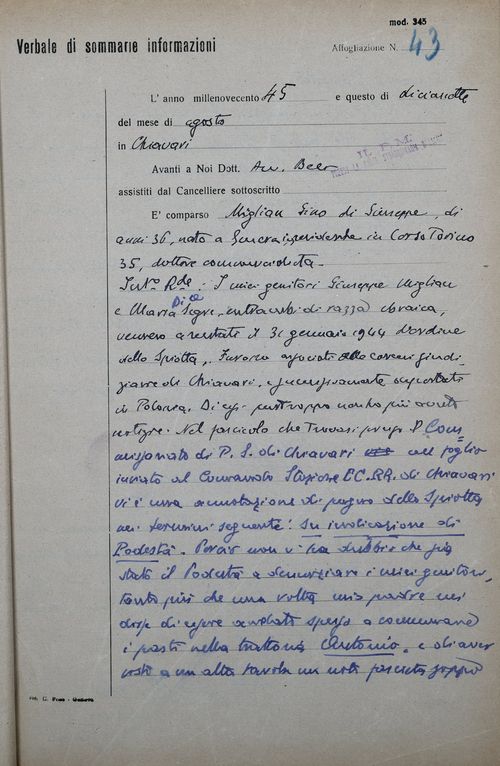 mod. 345
Verbale di sommarie informazioni
Affogliazione N. 43
L' anno millenovecento 45 e questo di diciassette
del mese di agosto
in Chiavari
IL P.M.
Avanti a Noi Dott. Avv. Beer
assistiti dal Cancelliere sottoscritto
E' comparso Migliau Gino di Giuseppe, di
anni 36, nato a Genova, residente in Corso Torino
35, dottore commercialista -
Int.º Rde : I miei genitori Giuseppe Migliau
Dice
e Maria Segre, entrambi di razza ebraica,
vennero arrestati il 31 gennaio 1944 d'ordine
dello Spiotta. Furono alle carceri giudi-
ziarie di Chiavari, e successivamente deportati
in Polonia. Di essi purtroppo non ho più avuto
notizie. Nel fascicolo che trovasi presso il Com-
missariato di P. S. di Chiavari nel foglio
inviato al Comando Stazione CC.RR. di Chiavari
vi è una annotazione di pugno dello Spiotta
nei termini seguenti: Su indicazione di
Podestà. Perciò non vi ha dubbio che sia
stato il Podestà a denunziare i miei genitori,
tanto più che una volta mio padre mi
disse di essere andato spesso a consumare
i pasti nella trattoria Antonio, e di aver
visto a un'altra tavola un noto fascista zoppo